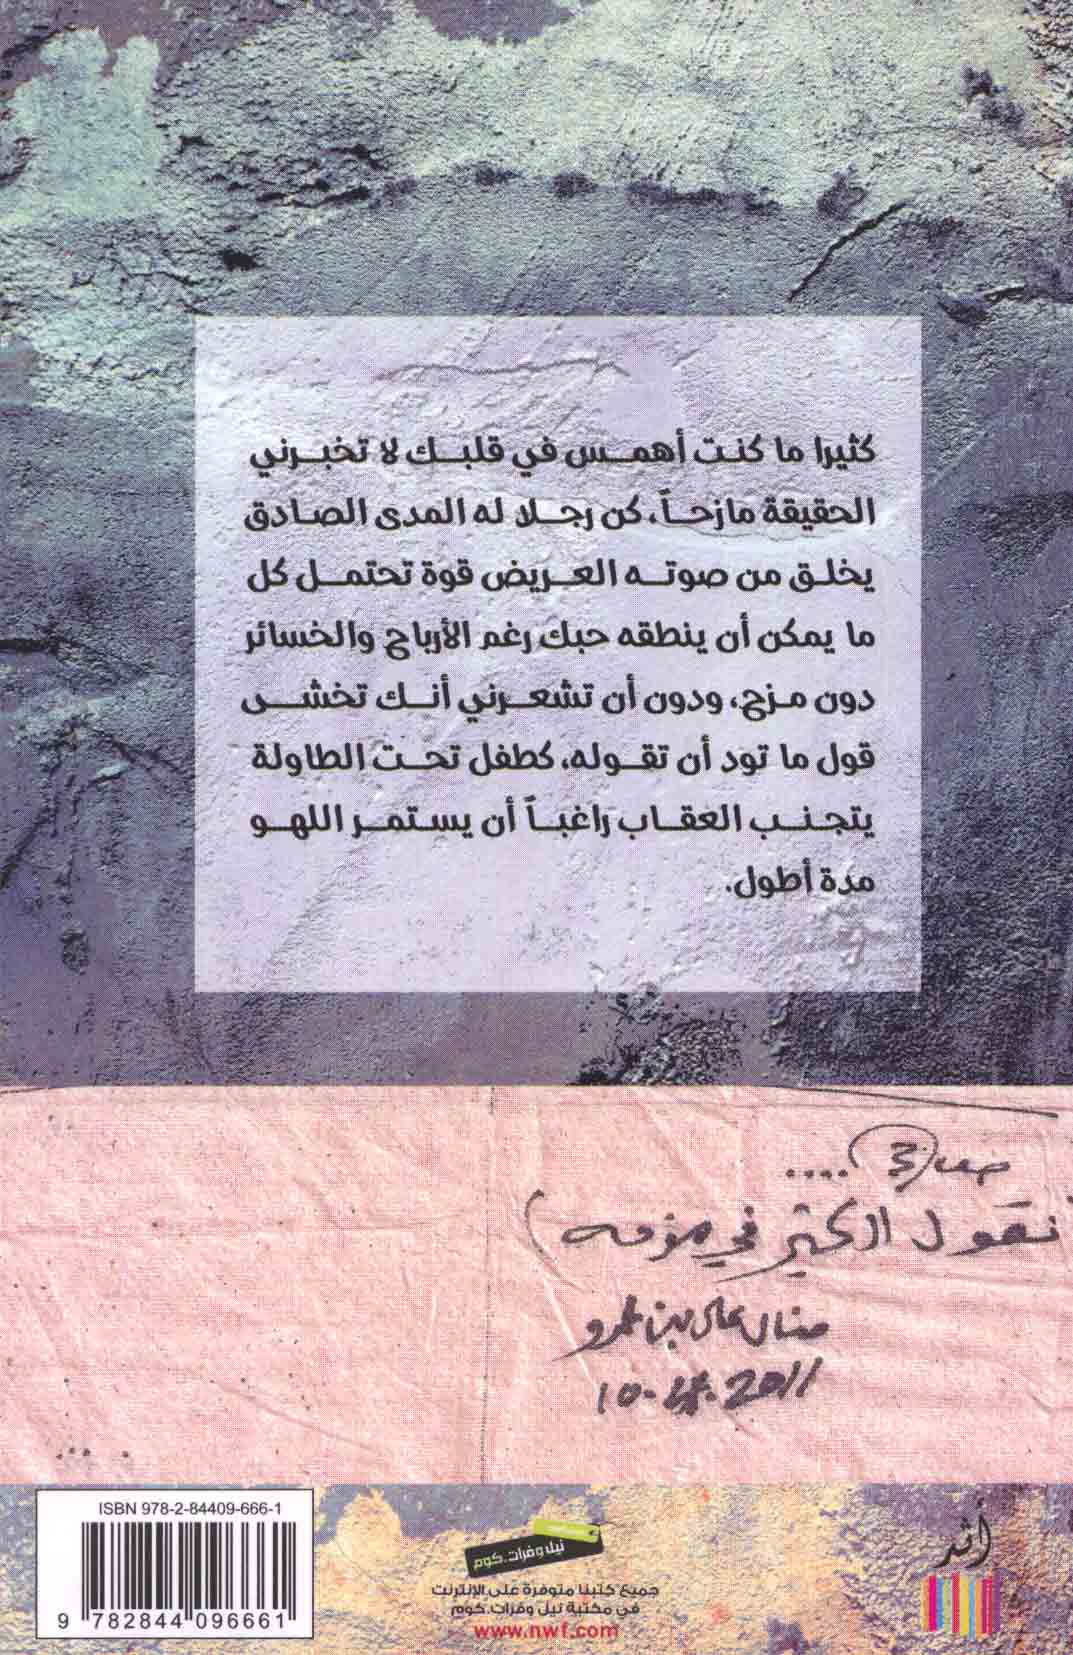 كثيرا ما كنت أهمس في قلبك لا تخبرني
الحقيقة مازحاً، كن رجلا له المدى الصادق
يخلق من صوته العريض قوة تحتمل كل
ما يمكن أن ينطقه حبك رغم الأرباح والخسائر
دون مزح، ودون أن تشعرني أنك تخشى
قول ما تود أن تقوله، كطفل تحت الطاولة
يتجنب العقاب راغباً أن يستمر اللهو
مدة أطول.
نقول الكثير في
منال علي بن عمرو
2011
ISBN 978-2-84409-666-1
9 782844 096661
نيل وفرات.كوم
جميع كتبنا متوفرة على الإنترنت
في مكتبة نيل وفرات.كوم
www.nwf.com
أثر